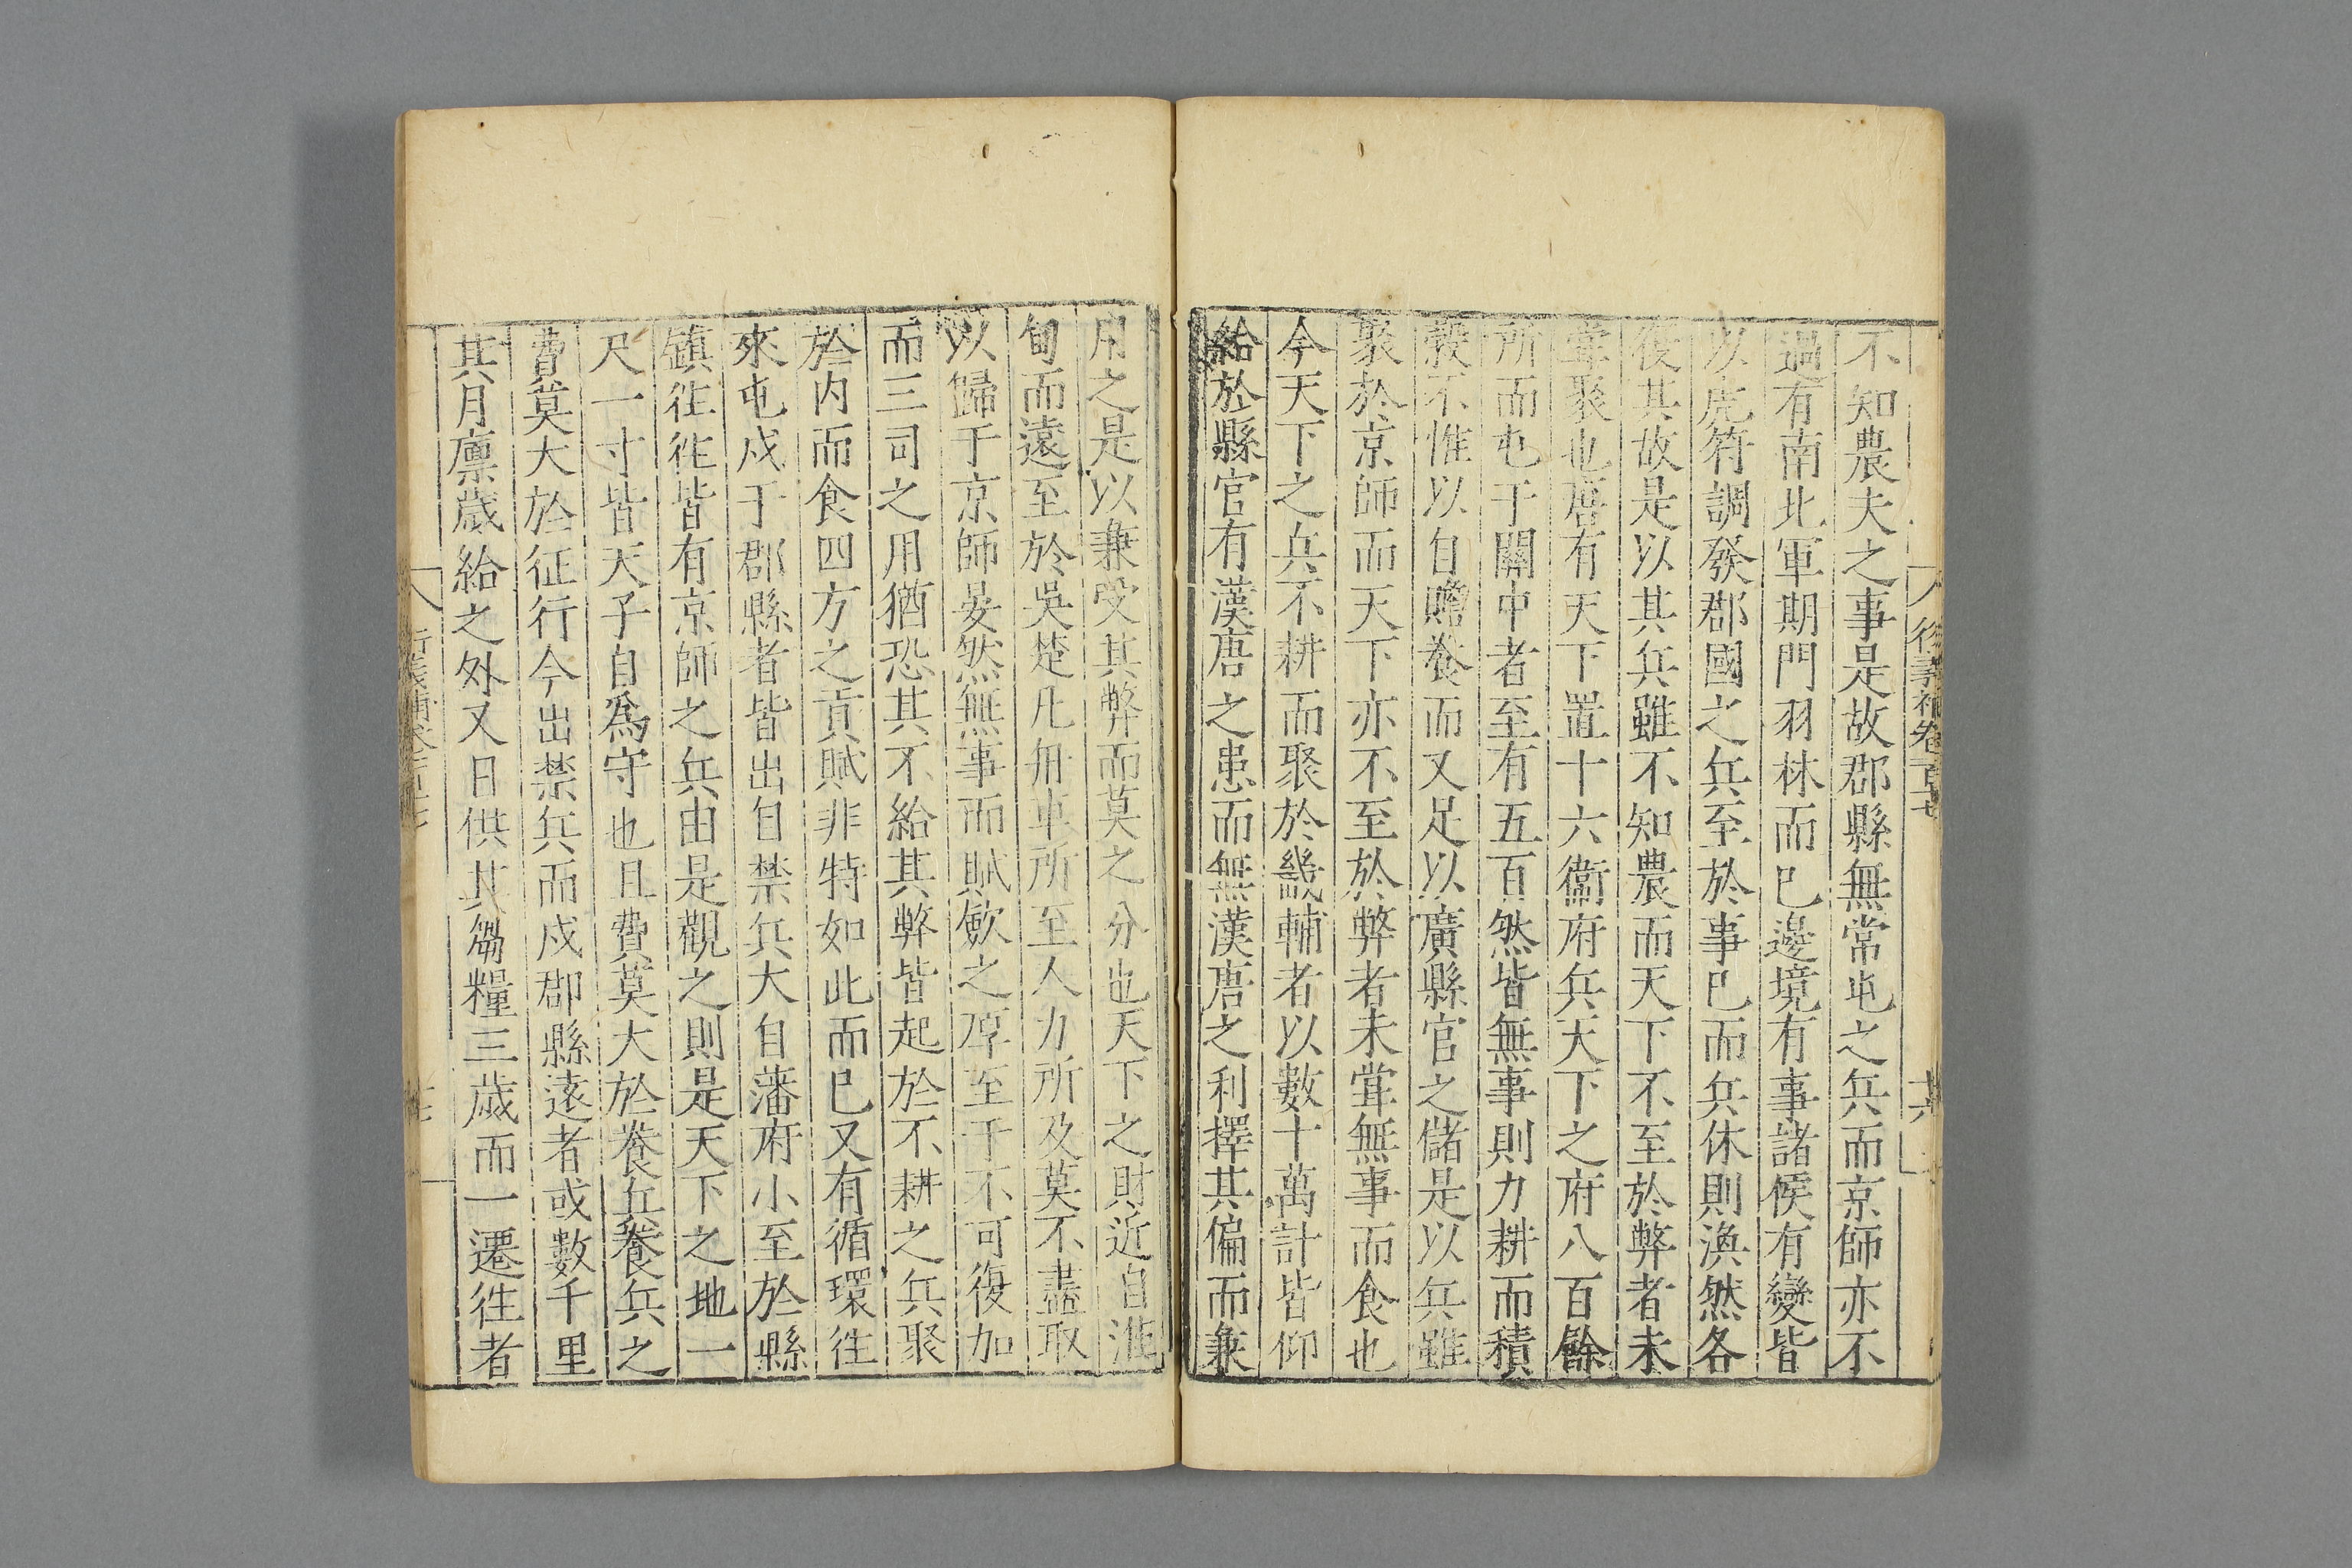 不知農夫之事是故郡縣無常屯之兵而京師亦不
過有南北軍期門羽林而已邊境有事諸侯有變皆
以虎符調發郡國之兵至於事已而兵休則渙然各
復其故是以其兵雖不知農而天下不至於弊者未
甞聚也唐有天下置十六衞府兵天下之府八百餘
所而屯于關中者至有五百然皆無事則力耕而積
穀不惟以自贍養而又足以廣縣官之儲是以兵雖
聚於京師而天下亦不至於弊者未甞無事而食也
今天下之兵不耕而聚於畿輔者以數十萬計皆仰
給於縣官有漢唐之患而無漢唐之利擇其偏而兼
用之是以兼受其弊而莫之分也天下之財近自淮
甸而遠至於吳楚凡舟車所至人力所及莫不盡取
以歸于京師晏然無事而賦歛之厚至于不可復加
而三司之用猶恐其不給其弊皆起於不耕之兵聚
於内而食四方之貢賦非特如此而已又有循環徃
來屯戍于郡縣者皆出自禁兵大自藩府小至於縣
鎮徃徃皆有京師之兵由是觀之則是天下之地一
尺一寸皆天子自爲守也且費莫大於養兵養兵之
費莫大於征行今出禁兵而戍郡縣遠者或數千里
其月廪歲給之外又日供其芻糧三歲而一遷徃者